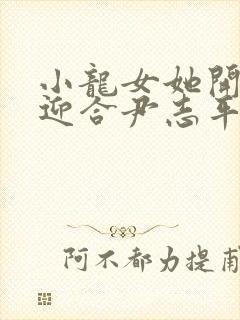 小龍女她開
迎合尹志平
阿不都力提甫